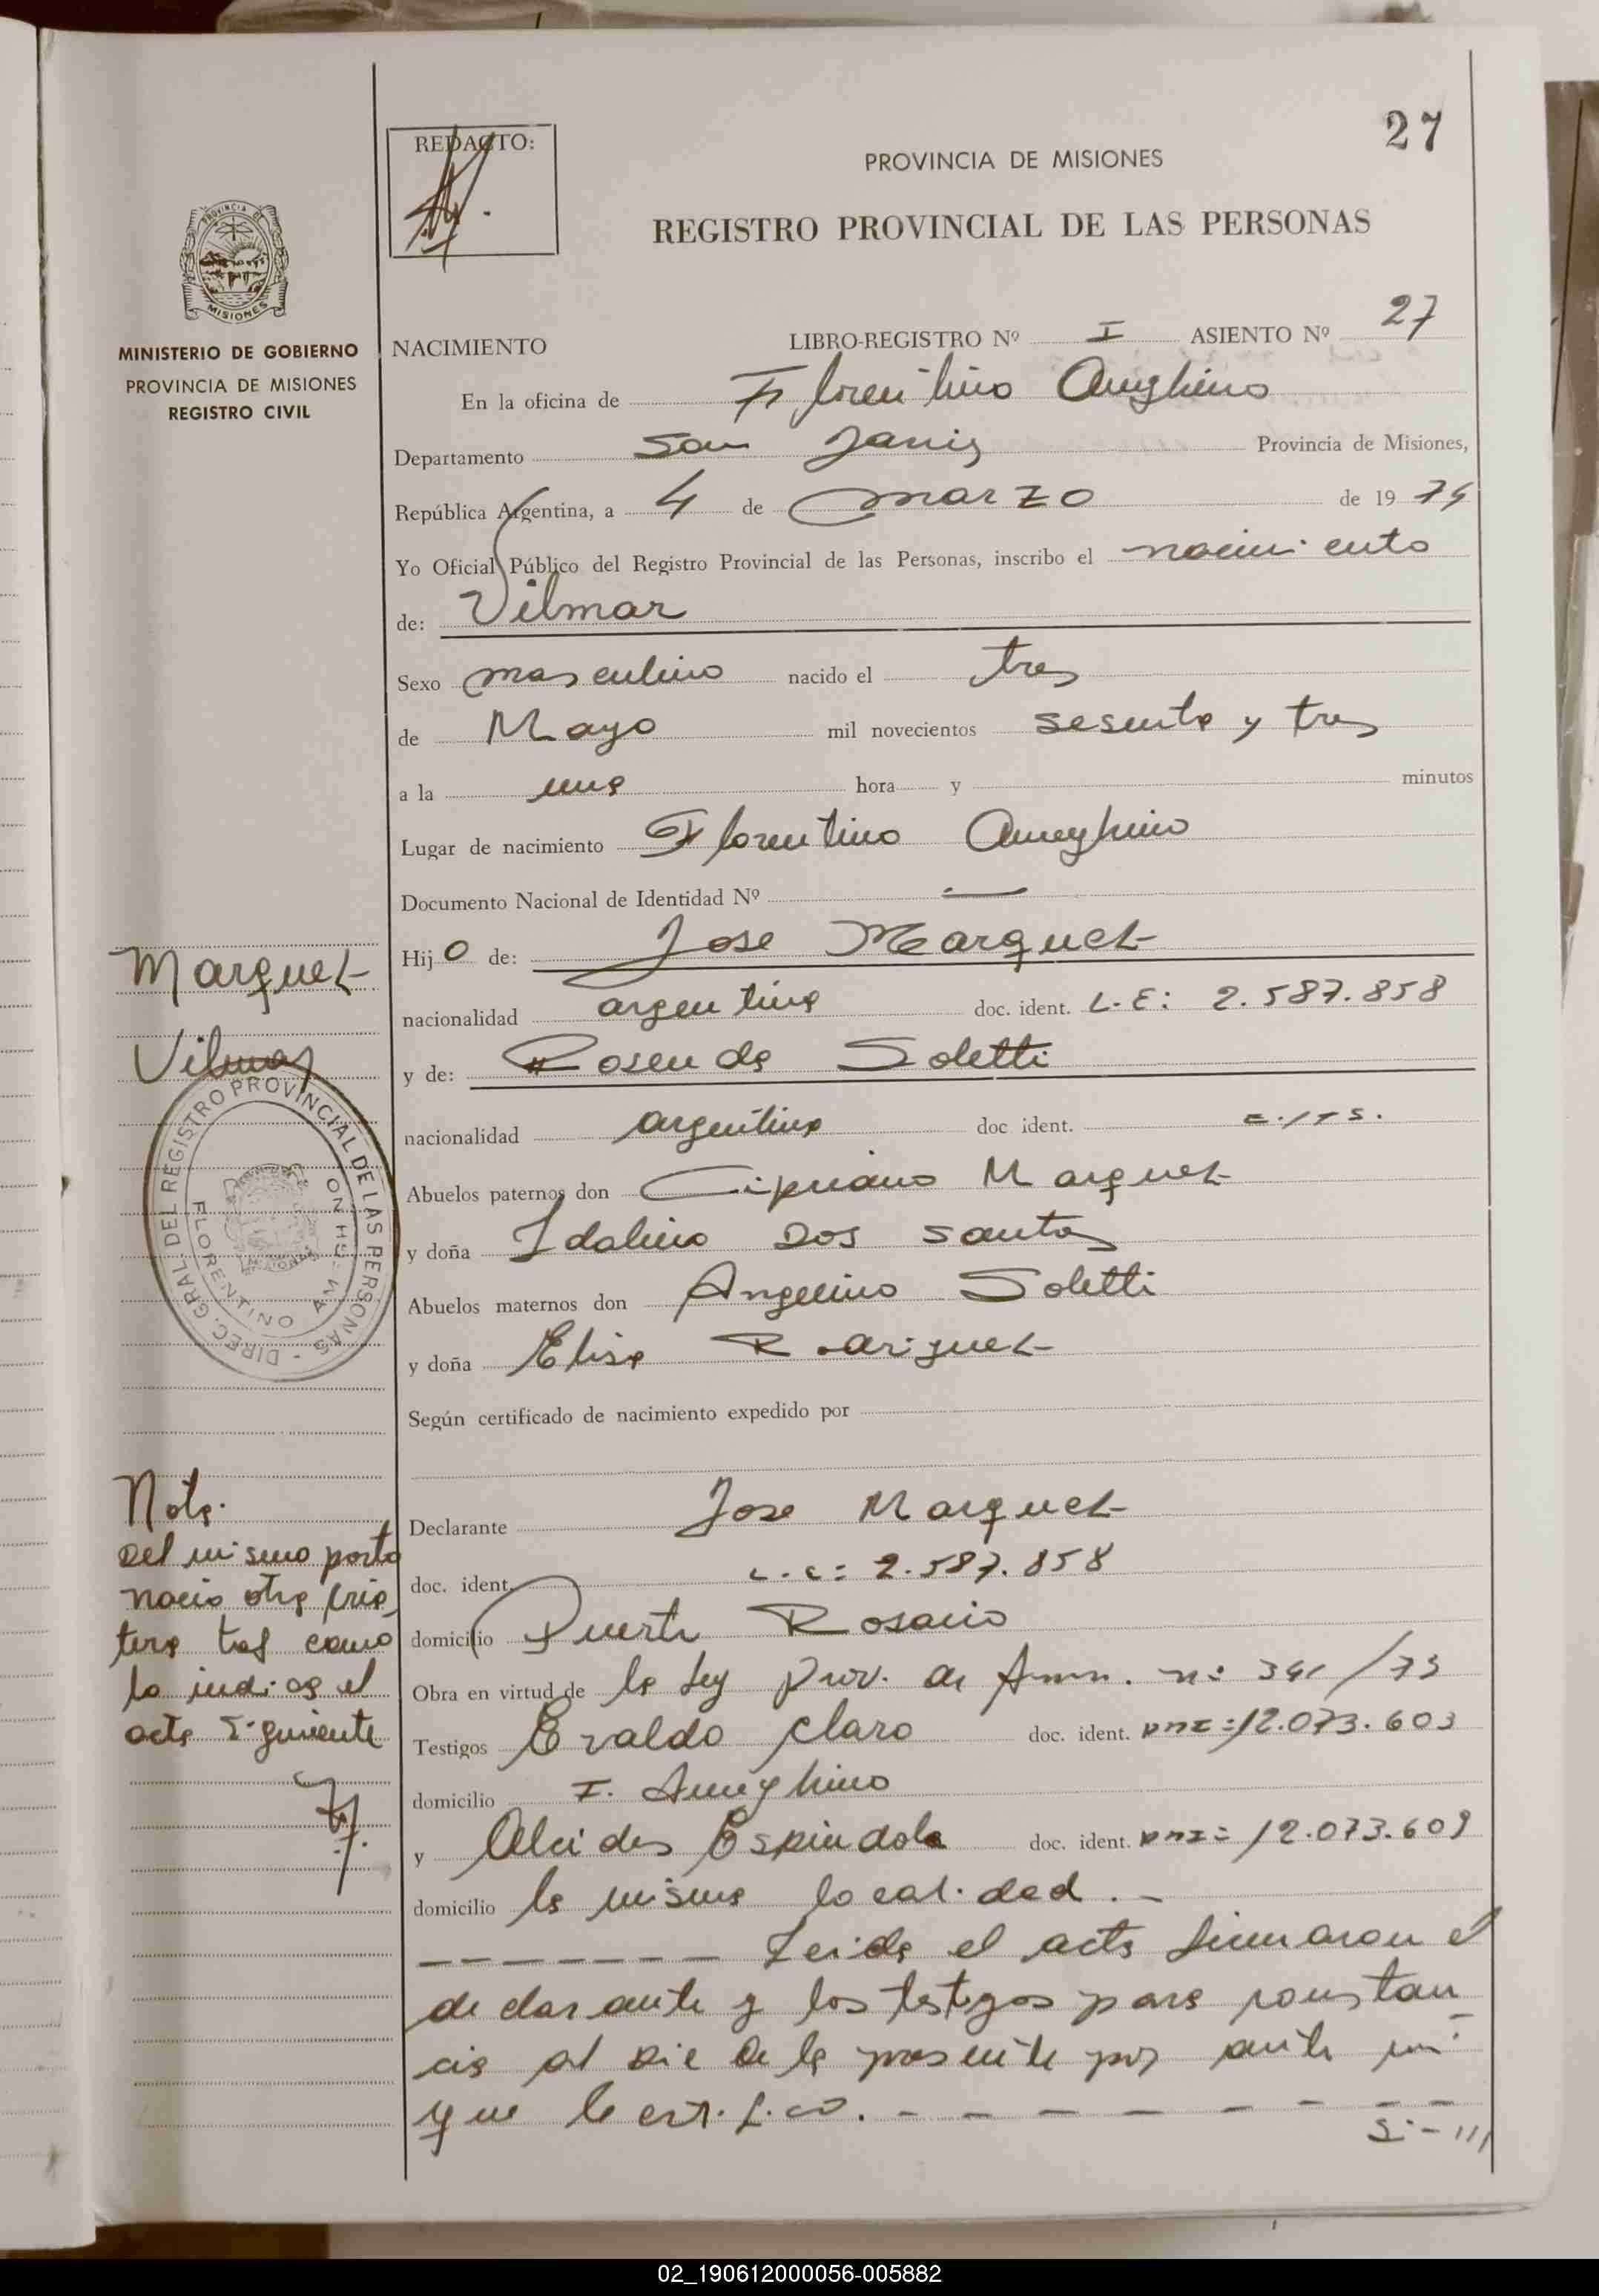 27
REDACTO:
PROVINCIA DE MISIONES
REGISTRO PROVINCIAL DE LAS PERSONAS
PROVINCIA DE
MISIONES
MINISTERIO DE GOBIERNO
PROVINCIA DE MISIONES
REGISTRO CIVIL
NACIMIENTO LIBRO-REGISTRO Nº I ASIENTO Nº 27
En la oficina de Florentino Ameghino
Departamento San Javier Provincia de Misiones,
República Argentina, a 4 de marzo de 1974
Yo Oficial Público del Registro Provincial de las Personas, inscribo el nacimiento
de: Vilmar
Sexo masculino nacido el tres
de Mayo mil novecientos sesenta y tres
a la una hora y minutos
Lugar de nacimiento Florentino Ameghino
Documento Nacional de Identidad Nº —
Hijo de: Jose Marquez
nacionalidad argentina doc. ident. L.E: 2.587.858
y de: Rosenda Soletti
nacionalidad argentina doc ident.
Abuelos paternos don Cipriano Marquez
y doña Idalina Dos Santos
Abuelos maternos don Angelino Soletti
y doña Elisa Rodriguez
Según certificado de nacimiento expedido por
Declarante Jose Marquez
doc. ident. L.E: 2.587.858
domicilio Puerto Rosario
Obra en virtud de la Ley Prov. de Amn. nº 341/73
Testigos Evaldo Claro doc. ident. DNI: 12.073.603
domicilio F. Ameghino
y Alcides Espindola doc. ident. DNI: 12.073.609
domicilio la misma localidad.-
------- Leida el acta firmaron el
declarante y los testigos para constan
cia al pie de la presente por ante mi
que certifico. - - - - - - - -
S.-///
Marquez
Vilmar
DIREC. GRAL. DEL REGISTRO PROVINCIAL DE LAS PERSONAS
FLORENTINO AMEGHINO
Nota.
Del mismo parto
nacio otra cria
tura tal como
lo indica el
acta siguiente
02_190612000056-005882